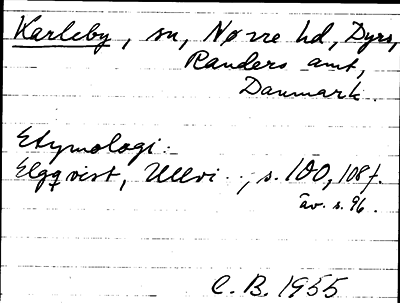 Karleby, sn, Nørre hd, Dyrs,
Randers amt,
Danmark.
Etymologi:
Elgqvist, Ullvi.., s. 100, 108 f.
äv. s. 96.
C. B. 1955